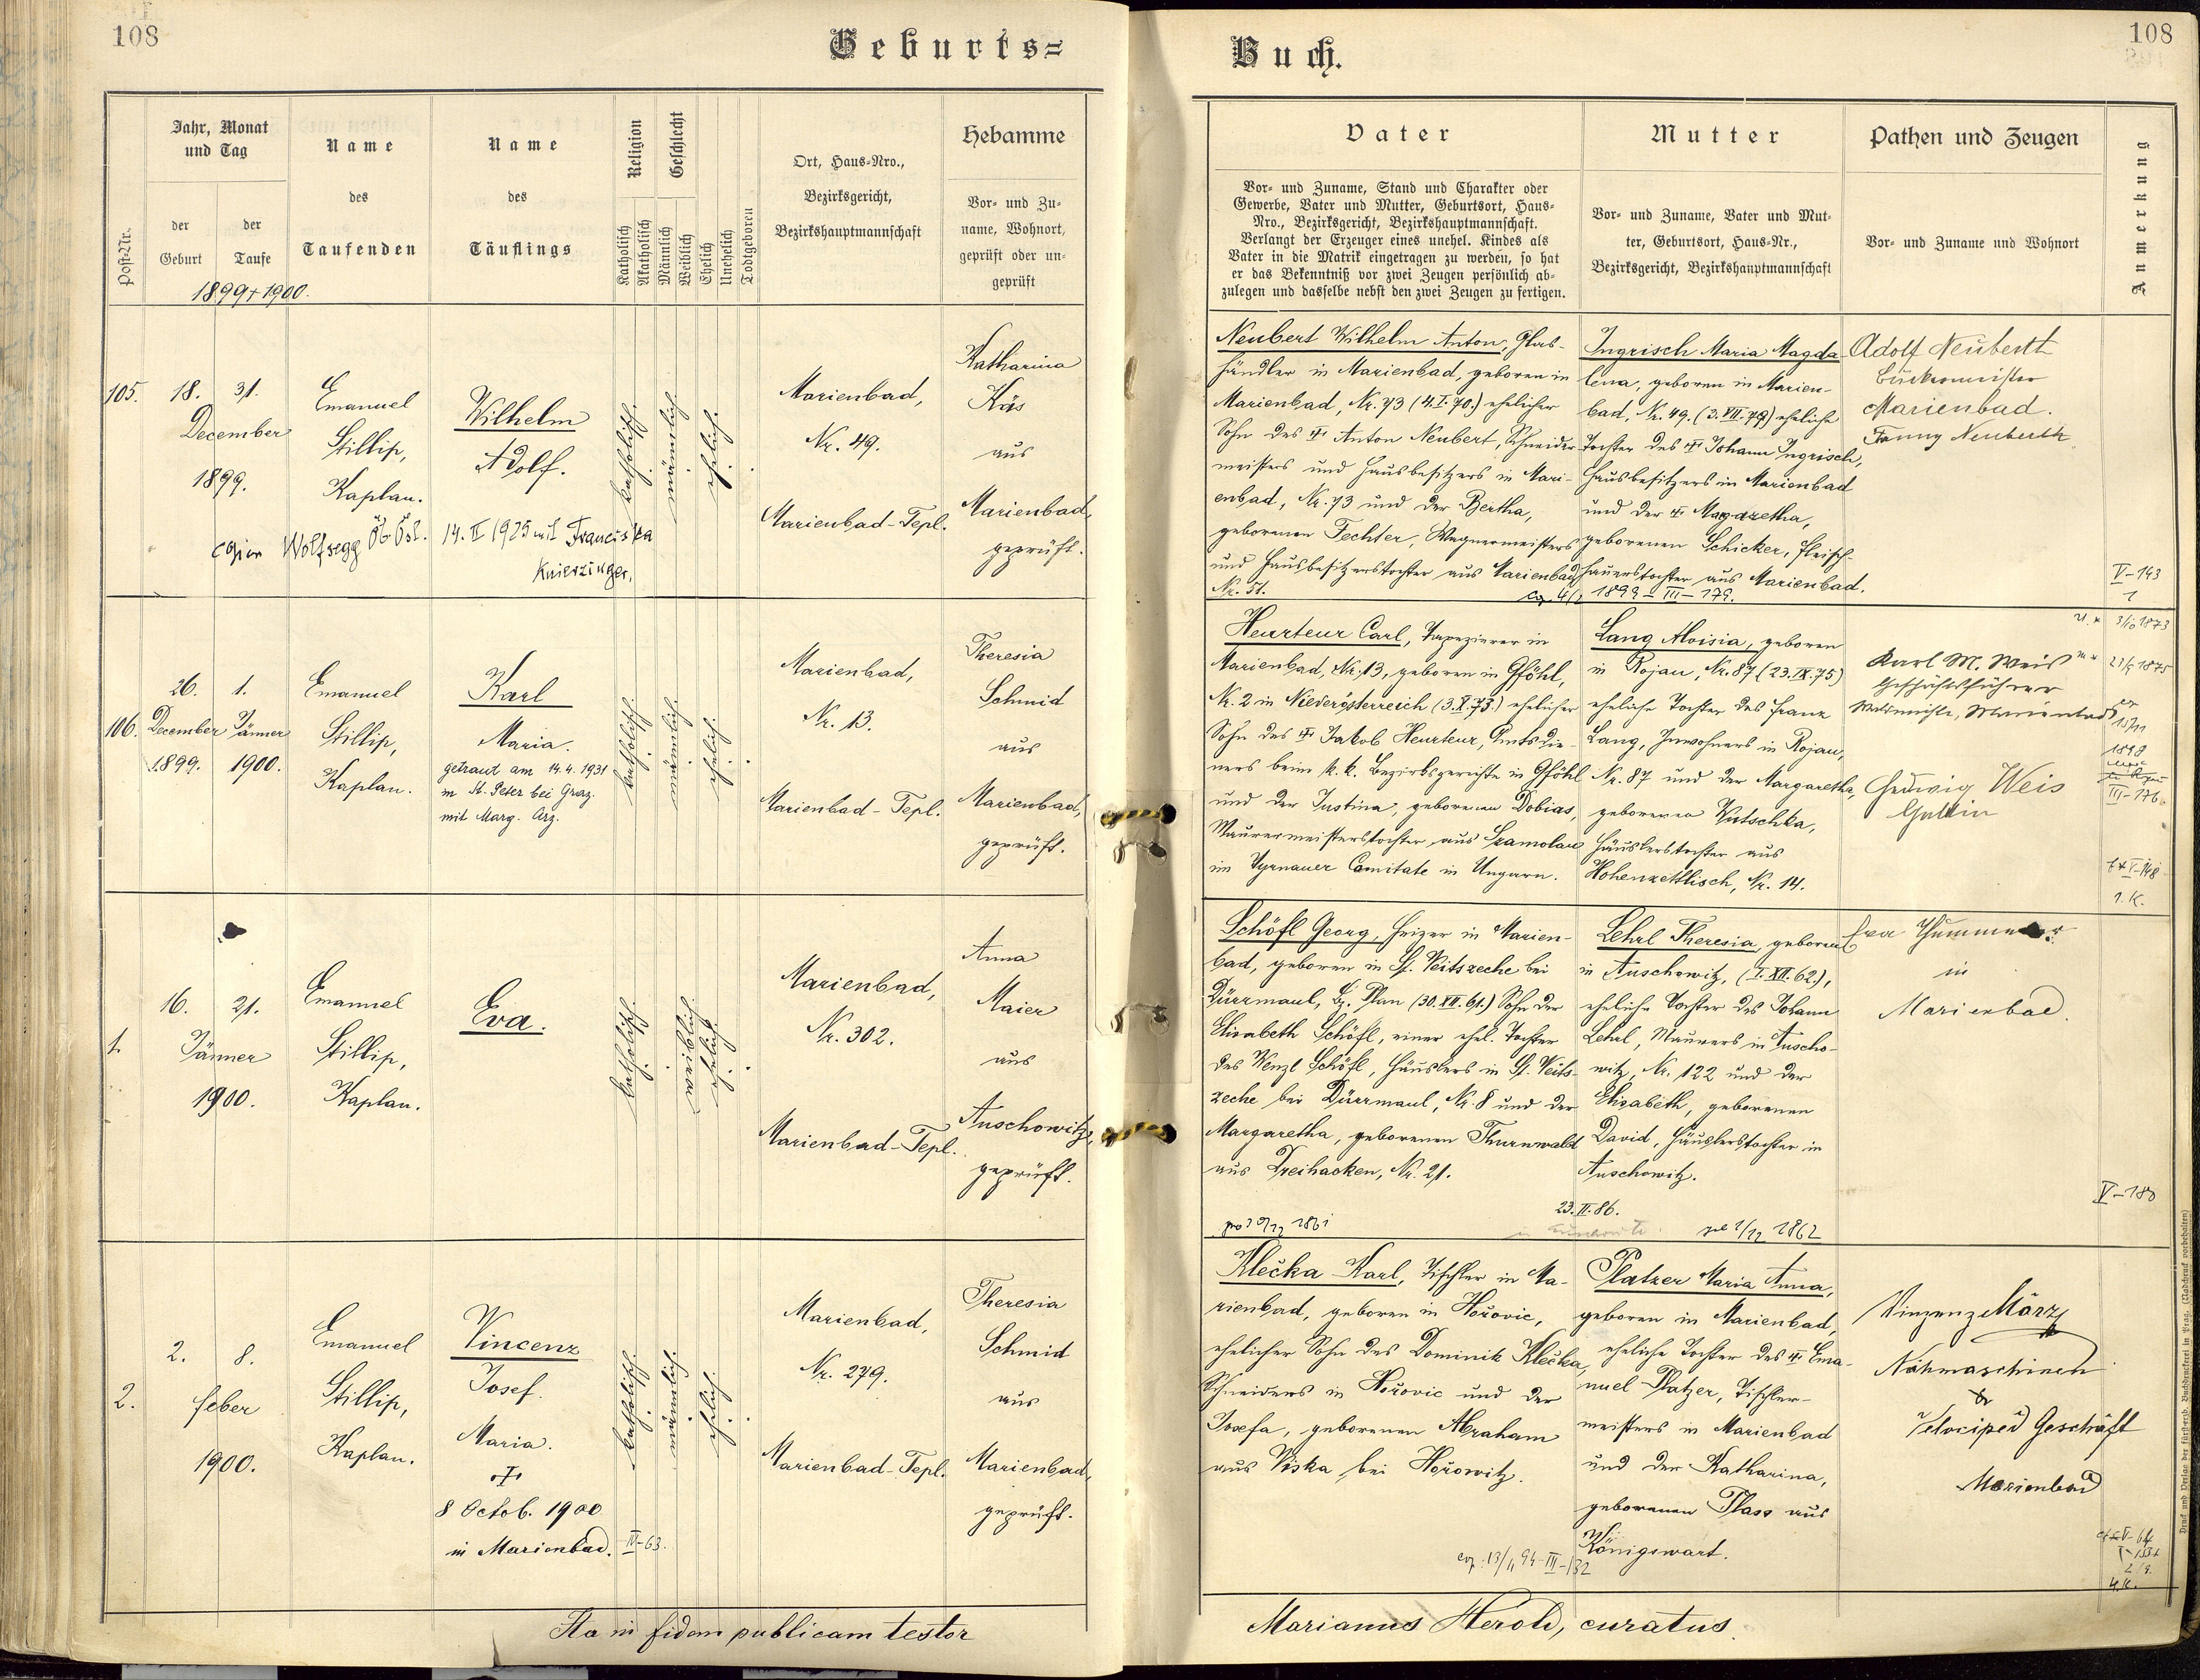 108
Geburts=
Jahr, Monat
und Tag
Name
Name
Religion
Geschlecht
Hebamme
Ort, Haus-Nro.,
Bezirksgericht,
Bezirkshauptmannschaft
des
des
der
Geburt
der
Taufe
Taufenden
Täuflings
Post-Nr.
Katholisch
Akatholisch
Männlich
Weiblich
Ehelich
Unehelich
Todtgeboren
Vor- und Zu-
name, Wohnort,
geprüft oder un-
geprüft
1899 + 1900.
105.
18.
31.
December
1899.
Emanuel
Stillip,
Kaplan.
Wilhelm
Adolf.
katholisch.
männlich.
ehelich.
Marienbad,
Nr. 49.
Marienbad-Tepl.
Katharina
Käs
aus
Marienbad,
geprüft.
Wolfsegg Ob. Öst. 14. II 1925 mit Franciska
Knierzinger.
106.
26.
December
1899.
1.
Jänner
1900.
Emanuel
Stillip,
Kaplan.
Karl
Maria.
getraut am 14.4.1931
in St. Peter bei Graz.
mit Marg. Arz.
katholisch.
männlich.
ehelich.
Marienbad,
Nr. 13.
Marienbad-Tepl.
Theresia
Schmid
aus
Marienbad,
geprüft.
1.
16.
21.
Jänner
1900.
Emanuel
Stillip,
Kaplan.
Eva.
katholisch.
weiblich.
ehelich.
Marienbad,
Nr. 302.
Marienbad-Tepl.
Anna
Maier
aus
Auschowitz,
geprüft.
2.
2.
8.
Feber
1900.
Emanuel
Stillip,
Kaplan.
Vincenz
Josef.
Maria.
†
8 Octob. 1900
in Marienbad. IV-63.
katholisch.
männlich.
ehelich.
Marienbad,
Nr. 279.
Marienbad-Tepl.
Theresia
Schmid
aus
Marienbad,
geprüft.
Ita in fidem publicam testor
Buch.
108
Vater
Mutter
Pathen und Zeugen
Anmerkung
Vor- und Zuname, Stand und Charakter oder
Gewerbe, Vater und Mutter, Geburtsort, Haus-
Nro., Bezirksgericht, Bezirkshauptmannschaft.
Verlangt der Erzeuger eines unehel. Kindes als
Vater in die Matrik eingetragen zu werden, so hat
er das Bekenntniß vor zwei Zeugen persönlich ab-
zulegen und dasselbe nebst den zwei Zeugen zu fertigen.
Vor- und Zuname, Vater und Mut-
ter, Geburtsort, Haus-Nr.,
Bezirksgericht, Bezirkshauptmannschaft
Vor- und Zuname und Wohnort
Neubert Wilhelm Anton, Glas-
händler in Marienbad, geboren in
Marienbad, Nr. 73 (4.I.70.) ehelicher
Sohn des † Anton Neubert, Schneider-
meisters und Hausbesitzers in Mari-
enbad, Nr. 73 und der Bertha,
geborenen Fechter, Wagnermeisters
und Hausbesitzerstochter aus Marienbad
Nr. 51.
Ingrisch Maria Magda-
lena, geboren in Marien-
bad, Nr. 49. (3.VII.78) eheliche
Tochter des † Johann Ingrisch,
Hausbesitzers in Marienbad
und der † Magaretha,
geborenen Schicker, Fleisch-
hauerstochter aus Marienbad.
1899 - III - 179.
Adolf Neuberth
Marienbad.
Fanny Neuberth
V-143
1
Heurteur Carl, Tapezierer in
Marienbad, Nr. 13, geboren in Gföhl,
Nr. 2 in Niederösterreich (3.X.73.) ehelicher
Sohn des † Jakob Heurteur, Amtsdie-
ners beim k. k. Bezirksgerichte in Gföhl
und der Justina, geborenen Dobias,
Maurermeisterstochter aus Szamolau
im Tyrnauer Comitate in Ungarn.
Lang Aloisia, geboren
in Rojau, Nr. 87 (23.IX.75)
eheliche Tochter des Franz
Lang, Inwohners in Rojau,
Nr. 87 und der Margaretha,
geborenen Wutschka,
Häuslerstochter aus
Hohenzettlisch, Nr. 14.
Karl M. Weis
Geschäftsführer
Waldmühle, Marienbad
Hedwig Weis
Gattin
3/10 1873
1898
III-176
V-148
1. K.
Schöfl Georg, Heizer in Marien-
bad, geboren in St. Veitszeche bei
Dürrmaul, Bz. Plan (30.XII.61.) Sohn der
Elisabeth Schöfl, einer ehel. Tochter
des Wenzl Schöfl, Häuslers in St. Veits-
zeche bei Dürrmaul, Nr. 8 und der
Margaretha, geborenen Thurnwald
aus Dreihacken, Nr. 21.
Lehrl Theresia, geboren
in Auschowitz, (1.XII.62),
eheliche Tochter des Johann
Lehrl, Maurers in Auscho-
witz, Nr. 122 und der
Elisabeth, geborenen
David, Häuslerstochter in
Auschowitz.
23.II.86.
1/12 1862
Eva
in
Marienbad.
V-180
Klečka Karl, Tischler in Ma-
rienbad, geboren in Hořovic,
ehelicher Sohn des Dominik Klečka,
Schneiders in Hořovic und der
Josefa, geborenen Abraham
aus Viska bei Hořowitz.
Platzer Maria Anna,
geboren in Marienbad,
eheliche Tochter des † Ema-
nuel Platzer, Tischler-
meisters in Marienbad
und der Katharina,
geborenen Plass aus
Königswart.
cop. 13/11 94-III-132
Vinzenz März
Nähmaschinen
&
Velociped Geschäft
Marienbad
4. K.
Marianus Herold, curatus.
Druck und Verlag der fürsterzb. Buchdruckerei in Prag. (Nachdruck vorbehalten)